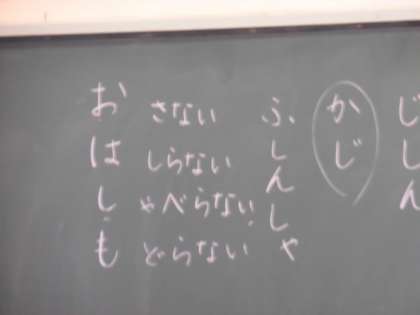 じしん
かじ
ふしんしゃ
おさない
はしらない
しゃべらない
もどらない